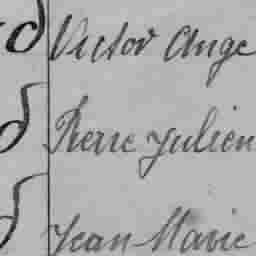 d Victor Ange
d Pierre Julien
d Jean Marie